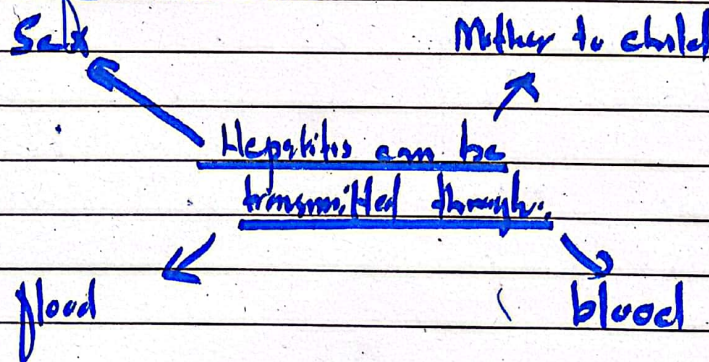 Sex
Mother to child
Hepatitis can be
transmitted through:
flood
blood